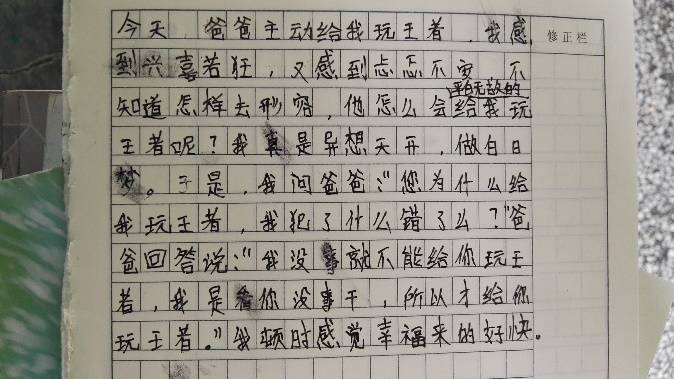 今天，爸爸主动给我玩王者，我感
修正栏
到兴喜若狂，又感到忐忑不安，不
平白无故的
知道怎样去形容，他怎么会给我玩
王者呢？我真是异想天开，做白日
梦。于是，我问爸爸：“您为什么给
我玩王者，我犯了什么错了么？”爸
爸回答说：“我没事就不能给你玩王
者，我是看你没事干，所以才给你
玩王者。”我顿时感觉幸福来的好快。